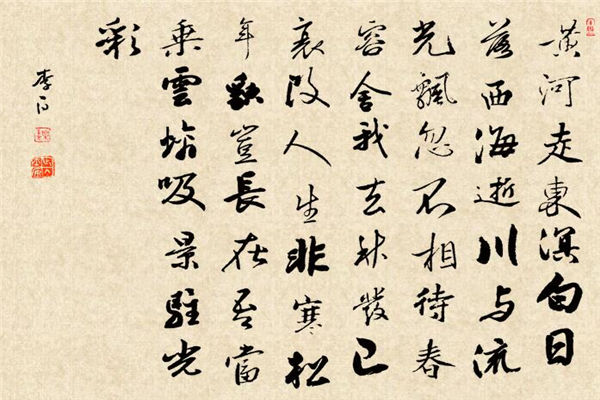 黃河走東溟白日
落西海逝川与流
光飄忽不相待春
容舍我去秋發已
衰改人生非寒松
年貌豈長在吾當
乘雲螭吸景駐光
彩
李白